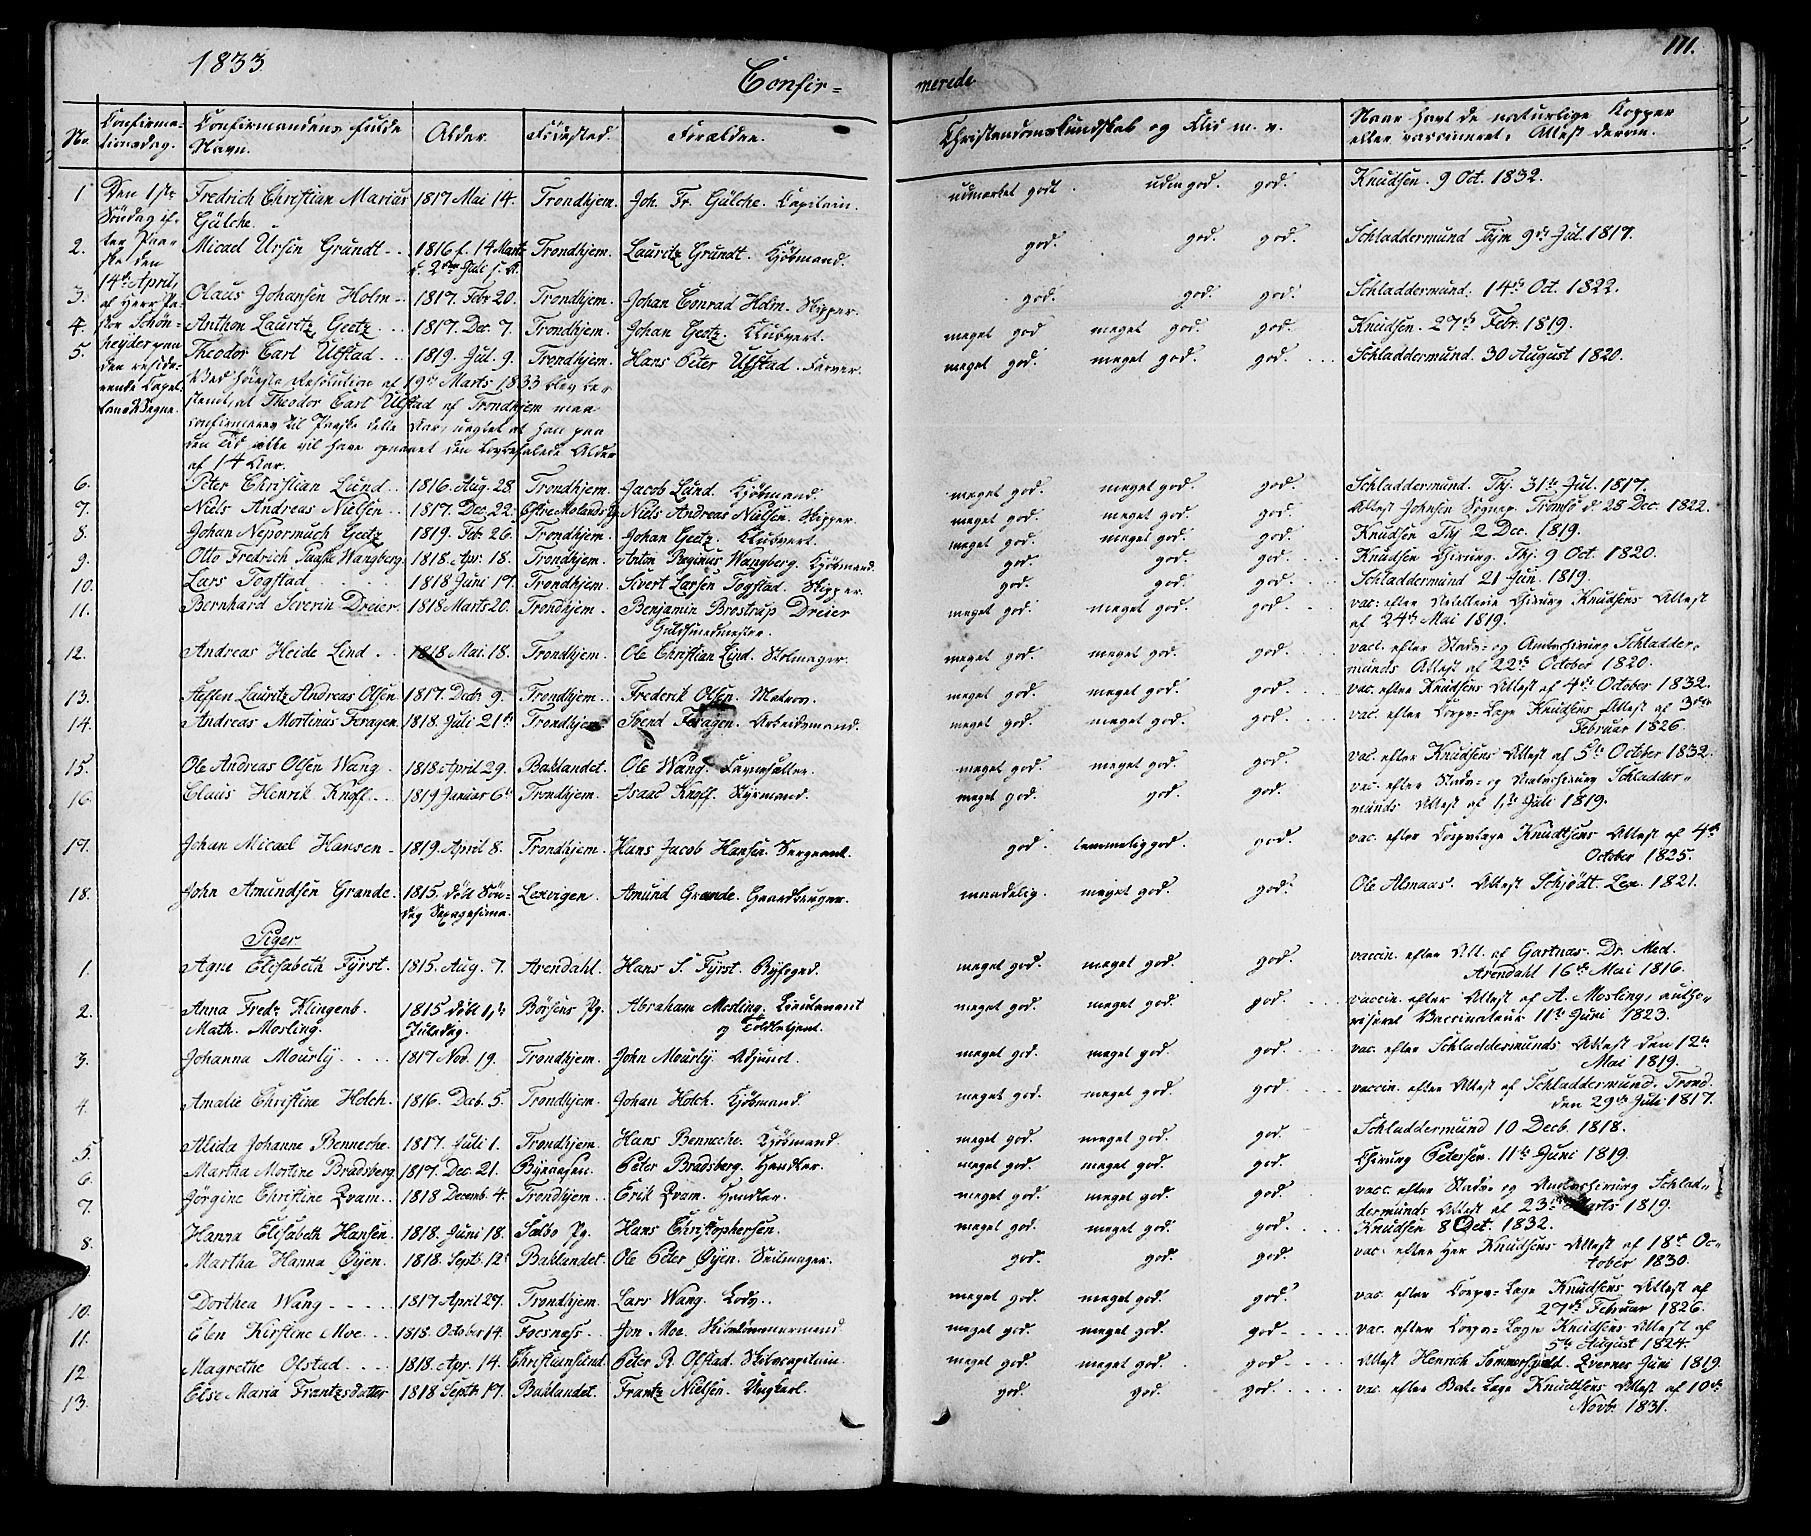 1833 Confir= merede 171.
No. Confirmationsdag. Confirmandens fulde Navn. Alder. Födested. Forældre. Christendomskundskab og Flid m. v. Naar havt de naturlige Kopper eller vaccineret. Attest derom.
Den 1ste Söndag efter Paaske den 14de April, af Herr Pastor Schönheyder paa den residerende Capellans Vegne.
1 Fredrich Christian Marius Gülche. 1817 Mai 14. Trondhjem. Joh. Fr. Gülche. Capitain. udmærket godt. udm god. god. Knudsen. 9 Oct. 1832.
2. Micael Ursin Grundt 1816 f. 14 Marts d. 2den Juli s. A. Trondhjem. Lauritz Grundt. Kjöbmand. god. god. god. Schladdermund Thjm 9de Jul. 1817.
3. Olaus Johansen Holm 1817. Febr 20. Trondhjem. Johan Conrad Holm. Skipper. god. god. god. Schladdermund. 14de Oct. 1822.
4. Anthon Lauritz Geetz 1817. Dec. 7. Trondhjem. Johan Geetz. Klubvert. meget god meget god. god. Knudsen. 27de Febr. 1819.
5. Theodor Carl Ulstad 1819. Jul. 9. Trondhjem. Hans Peter Ulstad. Farver. meget god. meget god. god. Schladdermund. 30 August 1820.
Ved höieste Resolution af 19de Marts 1833 blev be-
stemt, at Theodor Carl Ulstad af Trondhjem maa
confirmeres til Paaske dette Aar, uagtet at han paa
den Tid ikke vil have opnaaet den lovbefalede Alder
af 14 Aar.
6. Peter Christian Lund 1816. Aug. 28. Trondhjem. Jacob Lund. Kjöbmand. meget god. meget god. god. Schladdermund. Thj. 31te Jul. 1817.
7. Niels Andreas Nielsen 1817. Dec. 22. Östre Molands Pg. Niels Andreas Nielsen. Skipper. meget god. meget god. god. Attest Johnsen Sognep. Tromsö d 28 Dec. 1822.
8. Johan Nepormuch Geetz 1819. Febr. 26. Trondhjem. Johan Geetz. Klubvert. meget god. meget god. god. Knudsen Thj 2 Dec. 1819.
9. Otto Fredrich Wangberg. 1818. Apr. 18. Trondhjem. Anton Reginus Wangberg. Kjöbmand. god. god. god. Knudsen Chirurg. Thj. 9 Oct. 1820.
10. Lars Togstad 1818 Juni 17. Trondhjem. Sivert Larsen Togstad. Skipper. god. god. god. Schladdermund 21 Jun. 1819.
11. Bernhard Severin Dreier. 1818 Marts 20. Trondhjem. Benjamin Brostrup Dreier Guldsmedmester. meget god. meget god. god. vac: efter Artillerie Chirurg Knudsens Attest af 24de Mai 1819.
12. Andreas Heide Lind. 1818 Mai. 18. Trondhjem. Ole Christian Lind. Stolmager. meget god. meget god. god. vacc. efter Stads- og Amtschirurg Schladdermunds Attest af 22de October 1820.
13. Steffen Lauritz Andreas Olsen. 1817. Decbr 9. Trondhjem. Frederik Olsen. Matros. meget god. meget god. god. vac. efter Knudsens Attest af 4de October 1832.
14. Andreas Martinus Feragen. 1818. Juli 21de Trondhjem. Svend Feragen. Arbeidsmand. meget god. meget god. god. vac. efter Corps-Læge Knudsens Attest af 3die Februar 1826.
15. Ole Andreas Olsen Wang 1818 April 29. Baklandet. Ole Wang. meget god. meget god. god. vac. efter Knudsens Attest af 5te October 1832.
16. Claus Henrik Knoff 1819 Januar 6te Trondhjem. Isaac Knoff. Styrmand. meget god. god. god. vac. efter Stads- og Amtschirurg Schladdermunds Attest af 1ste Juli 1819.
17. Johan Micael Hansen 1819. April 8. Trondhjem. Hans Jacob Hansen. Sergeant. god. temmelig god. god. vac. efter Corpslæge Knudtsens Attest af 4de October 1825.
18. John Amundsen Grande. 1815. döbt Söndag Sexagesima. Lexvigen. Amund Grande. Gaardbruger. maadelig. meget god. god. Ole Almaas. Attest Schjödt. Lex. 1821.
Piger.
1. Agne Elisabeth Fyrst. 1815. Aug. 7. Arendahl. Hans S. Fyrst. Byfoged. meget god. meget god. god. vaccin. efter Att. af Gartnas. Dr. Med. Arendahl 16de Mai 1816.
2. Anna Fredr. Klingenb. Math. Mosling. 1815 döbt 1ste Juledag. Börsens Pg. Abraham Mosling. Lieutenant og Toldbetjent. meget god. meget god. god. vaccin. efter Attest af A. Mosling, authoriseret Vaccinateur 11te Juni 1823.
3. Johanna Mourly 1817 Nov. 19. Trondhjem. John Mourly Adjunct. meget god. meget god. god. vac. efter Schladdermunds Attest den 12te Mai 1819.
4. Amalie Christine Holch. 1816. Decb. 5. Trondhjem. Johan Holch. Kjöbmand. meget god. meget god. god vaccin. efter Attest af Schladdermund. Trond. den 29de Juli 1817.
5. Alida Johanne Benneche. 1817. Juli 1. Trondhjem. Hans Benneche. Kjöbmand. meget god. meget god. god. Schladdermund 10 Decb. 1818.
6. Martha Mortine Bradsberg. 1817. Dec. 21. Bynæsen. Peter Bradsberg. Handler. meget god. meget god. god. Chirurg Petersen. 11te Juni 1819.
7. Jörgine Christine Qvam. 1818 Decemb. 4. Trondhjem. Erik Qvam. Handler. meget god. meget god. god. vacc. efter Stads- og Amtschirurg Schladdermunds Attest af 23de Marts 1819.
8. Hanna Elisabeth Hansen. 1818. Juni 18. Sælbo Pg. Hans Christophersen. meget god. meget god. god. Knudsen 8 Oct. 1832.
Martha Hanna Öyen. 1818. Septb. 12te Baklandet. Ole Peter Öyen. Seilmager. god. god. god. vac. efter Herr Knudsens Attest af 18de October 1830.
10. Dorthea Wang 1817 April 27. Trondhjem. Lars Wang. Lods. meget god. meget god. god. vac. efter Corps-Læge Knudsens Attest af 27de Februar 1826.
11. Elen Kirstine Moe 1818. October 14. Foesness. Jon Moe. Skibstömmermand. meget god. meget god. god vac. efter Corps-Læge Knudsens Attest af 5te August 1824.
12. Magrethe Olstad. 1818. Apr. 14. Christiansund. Peter R. Olstad. Skibscapitain. meget god. meget god. god Attest Henrich Sommerschield. Qvernes Juni 1819.
13. Else Maria Frantzdatter 1818 Septb. 17. Baklandet. Frantz Nielsen. Ungkarl. god. god. god. vac. efter Bat. Læge Knudtsens Attest af 10de Novbr. 1831.